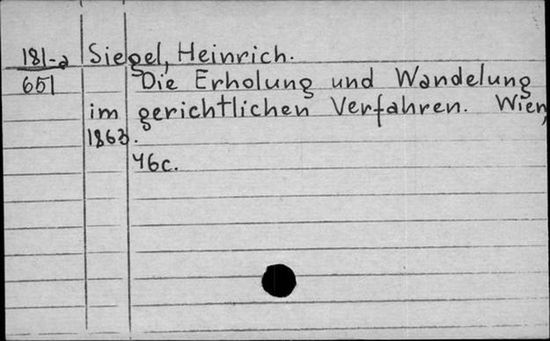 181-a Siegel, Heinrich.
651 Die Erholung und Wandelung
im gerichtlichen Verfahren. Wien,
1863.
46c.